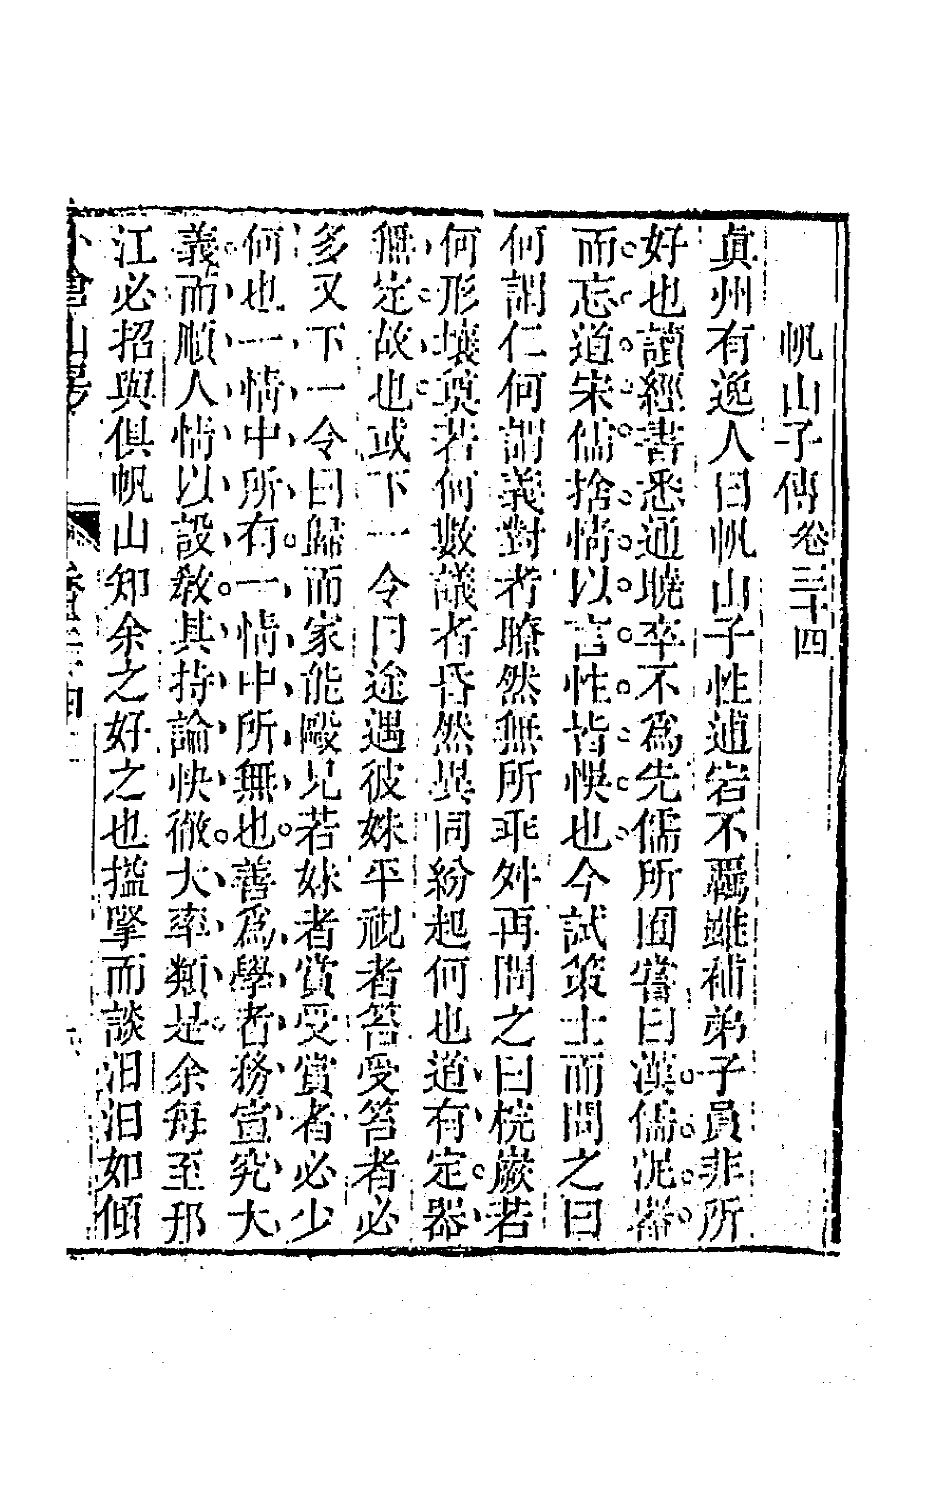 帆山子傳卷三十四
真州有逸人曰帆山子性逋宕不羈雖補弟子員非所
好也讀經書悉通曉卒不為先儒所囿嘗曰漢儒泥器
而忘道宋儒捨情以言性皆悞也今試策士而問之曰
何謂仁何謂義對者瞭然無所乖舛再問之曰梡嶡若
何形壤奠若何數議者昏然異同紛起何也道有定器
無定故也或下一令曰途遇彼姝平視者笞受笞者必
多又下一令曰歸而家能毆兄若妹者賞受賞者必少
何也一情中所有一情中所無也善為學者務宣究大
義而順人情以設教其持論快徹大率類是余每至邗
江必招與俱帆山知余之好之也搵擥而談汨汨如傾
小倉山房 卷三十四